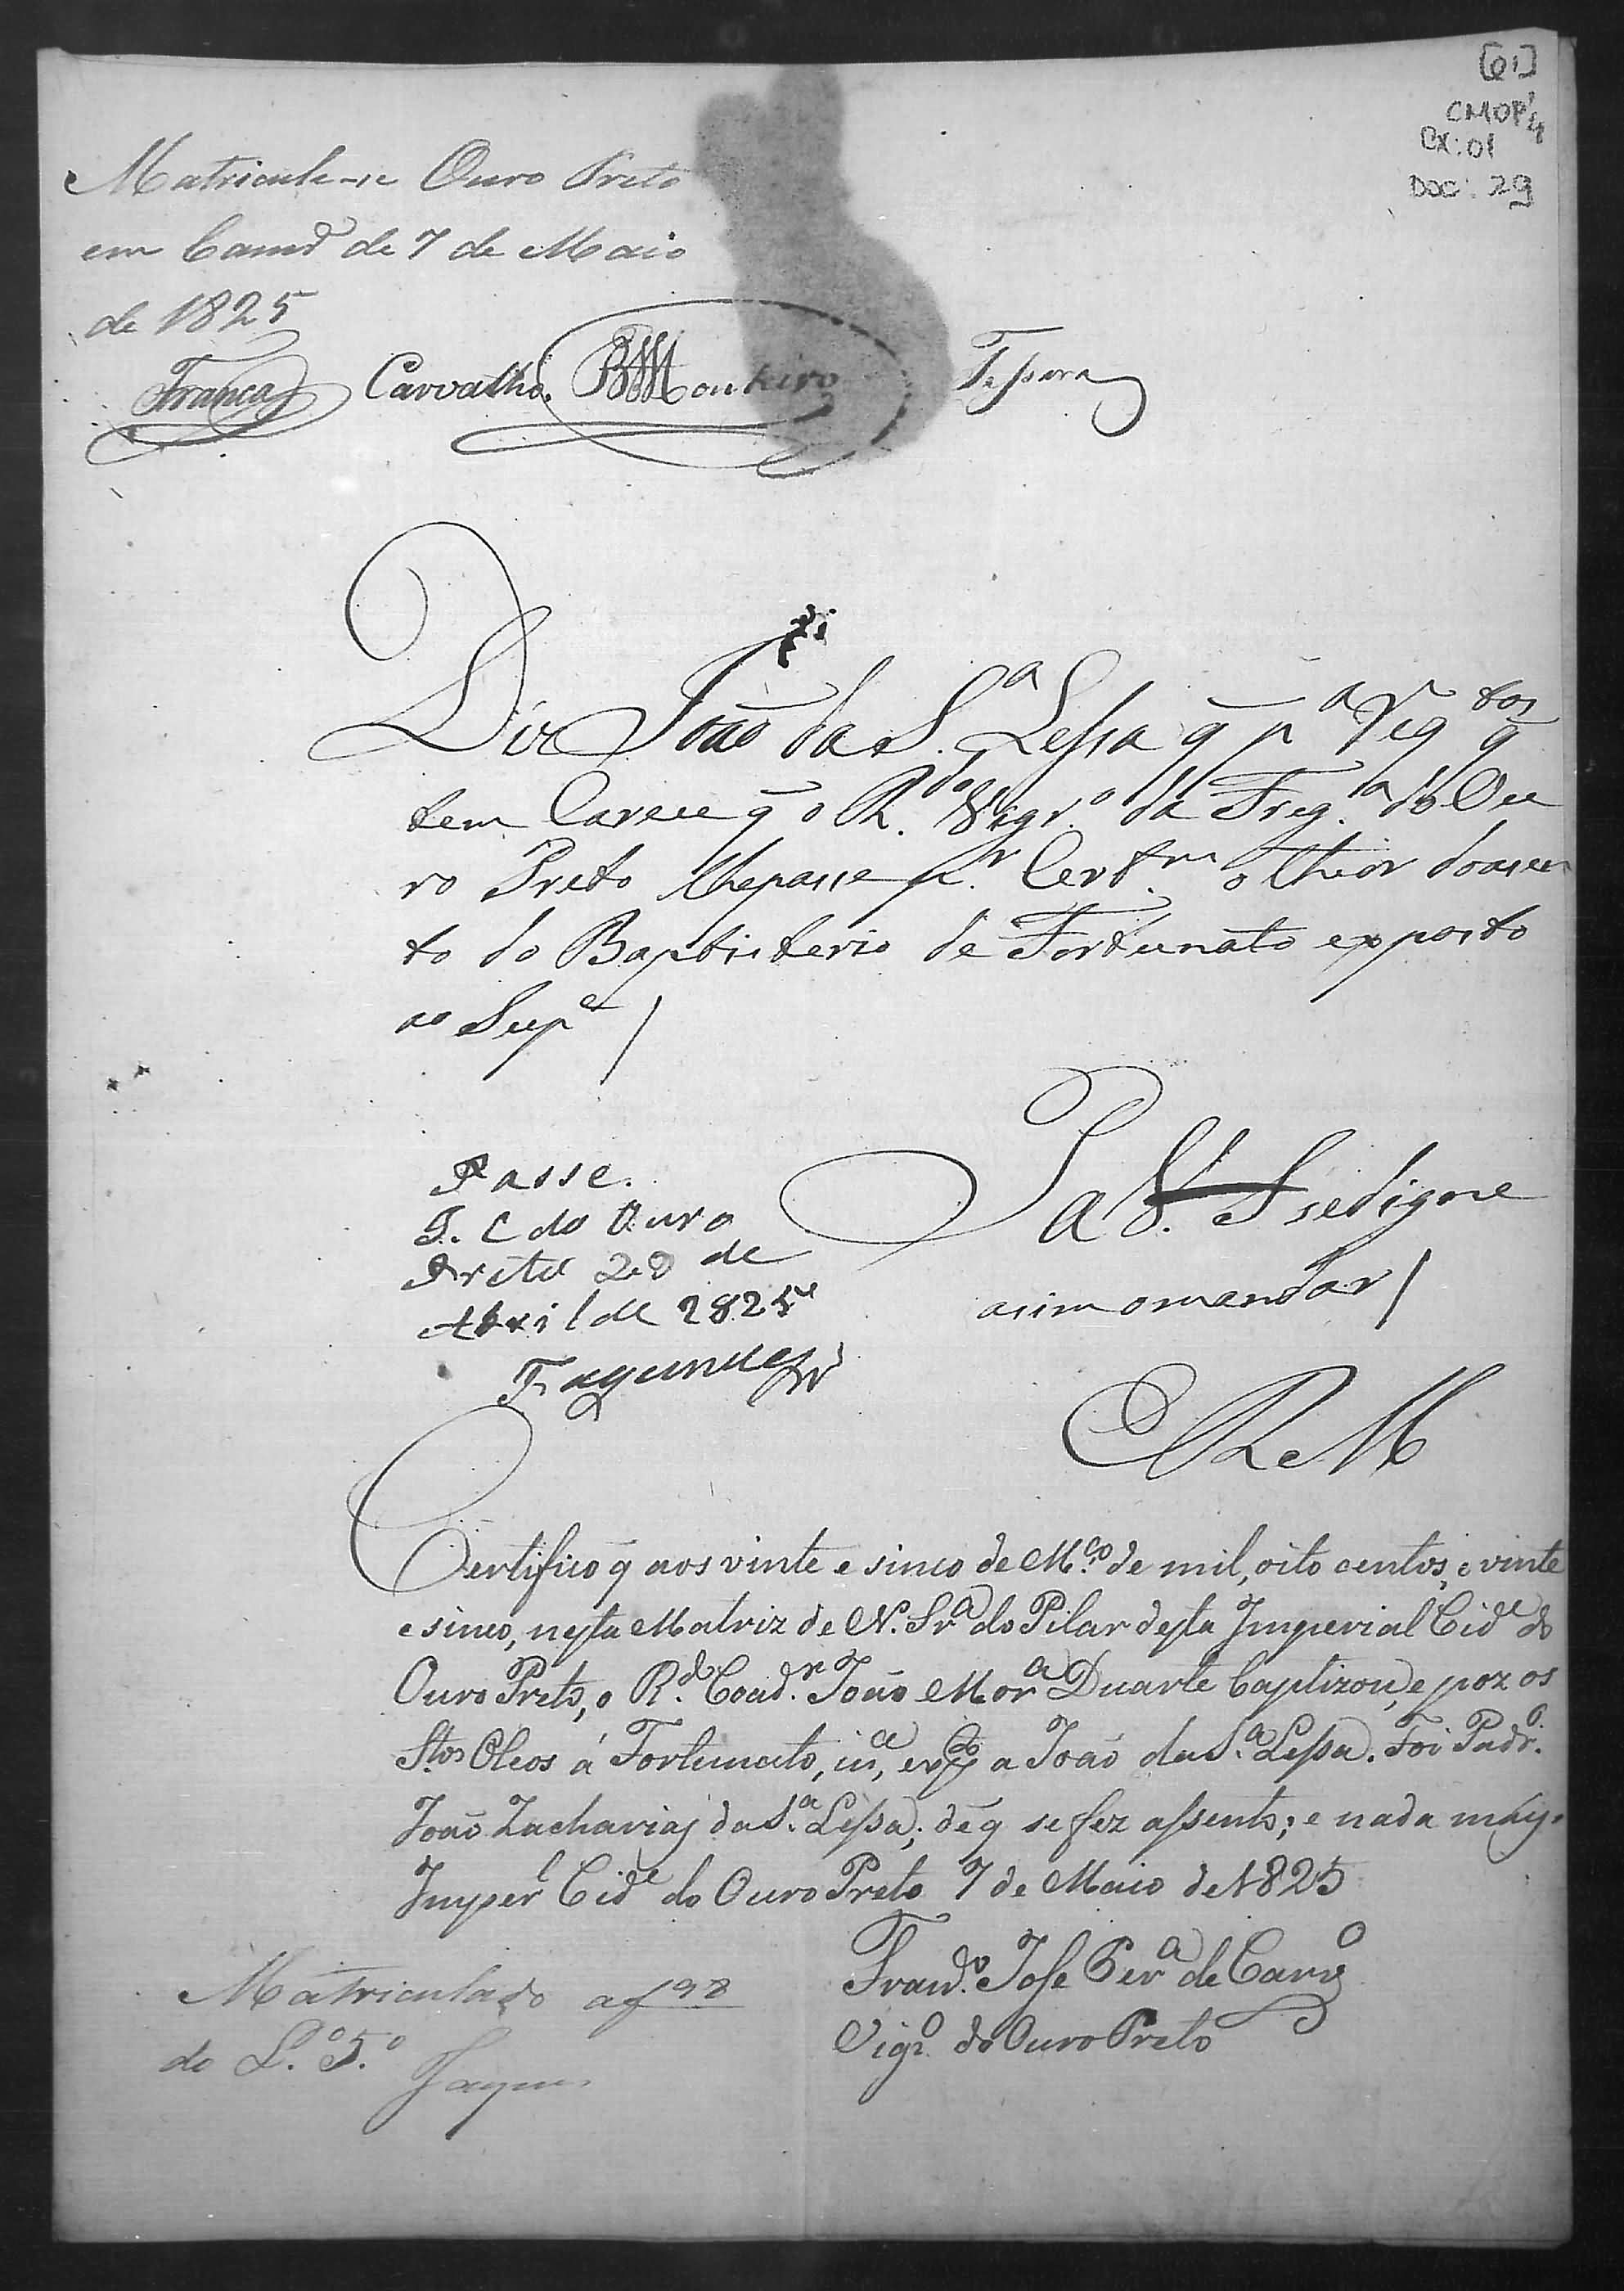 [01]
CMOP
CX: 01
DOC: 29
Matricule-se Ouro Preto
em Cam.ª de 7 de Maio
de 1825
França Carvalho. Monteiro
Diz João da S.ª Lessa q̃ p.ª req.tos q̃
tem Carece q̃ o R.do Vigr.º da Freg.ª do Ou
ro Preto lhe passe p.r Cert.m o Theor do asen
to do Baptisterio de Fortunato exposto
ao Sup.e /
P a V. S se digne
asim o mandar /
Passe.
I. C do Ouro
Preto 28 de
Abril de 1825
Fagundes
E R e M
Certifico q̃ aos vinte e sinco de M.ço de mil, oito centos, e vinte
e sinco, nesta Matriz de N. Sr.ª do Pilar desta Imperial Cid.e do
Ouro Preto, o R.do Coad.r João Mor.ª Duarte baptizou, e poz os
S.tos Oleos á Fortunato, in.e, exp.to a João da S.ª Lessa. Foi Padr.º
João Zacharias da S.ª Lessa; de q̃ se fez assento; e nada mays.
Imper.l Cid.e do Ouro Preto 7 de Maio de 1825
Fran.co Jose Per.ª de Carv.º
Vigr.º do Ouro Preto
Matriculado a f 98
do L.º 5.º